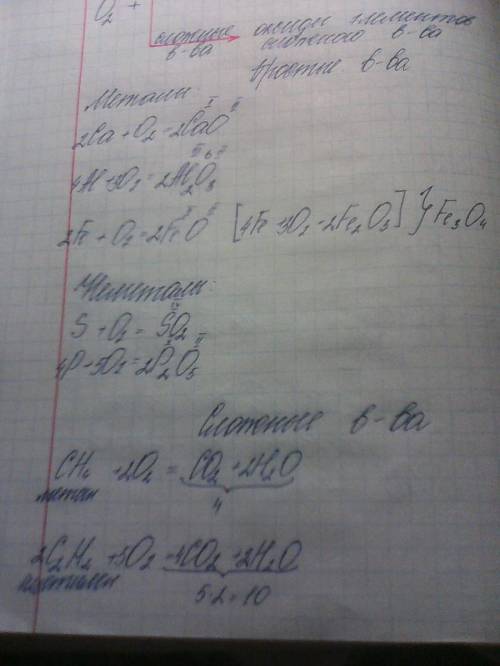 O₂ +
сложные в-ва
оксиды элементов
сложного в-ва
Простые в-ва
Металлы
2Ca + O₂ = 2CaO
4Al + 3O₂ = 2Al₂O₃
2Fe + O₂ = 2FeO [4Fe + 3O₂ = 2Fe₂O₃] } Fe₃O₄
Неметаллы:
S + O₂ = SO₂
4P + 5O₂ = 2P₂O₅
Сложные в-ва
CH₄ + 2O₂ = CO₂ + 2H₂O
метан
4
2C₂H₂ + 5O₂ = 4CO₂ + 2H₂O
ацетилен
5·2=10